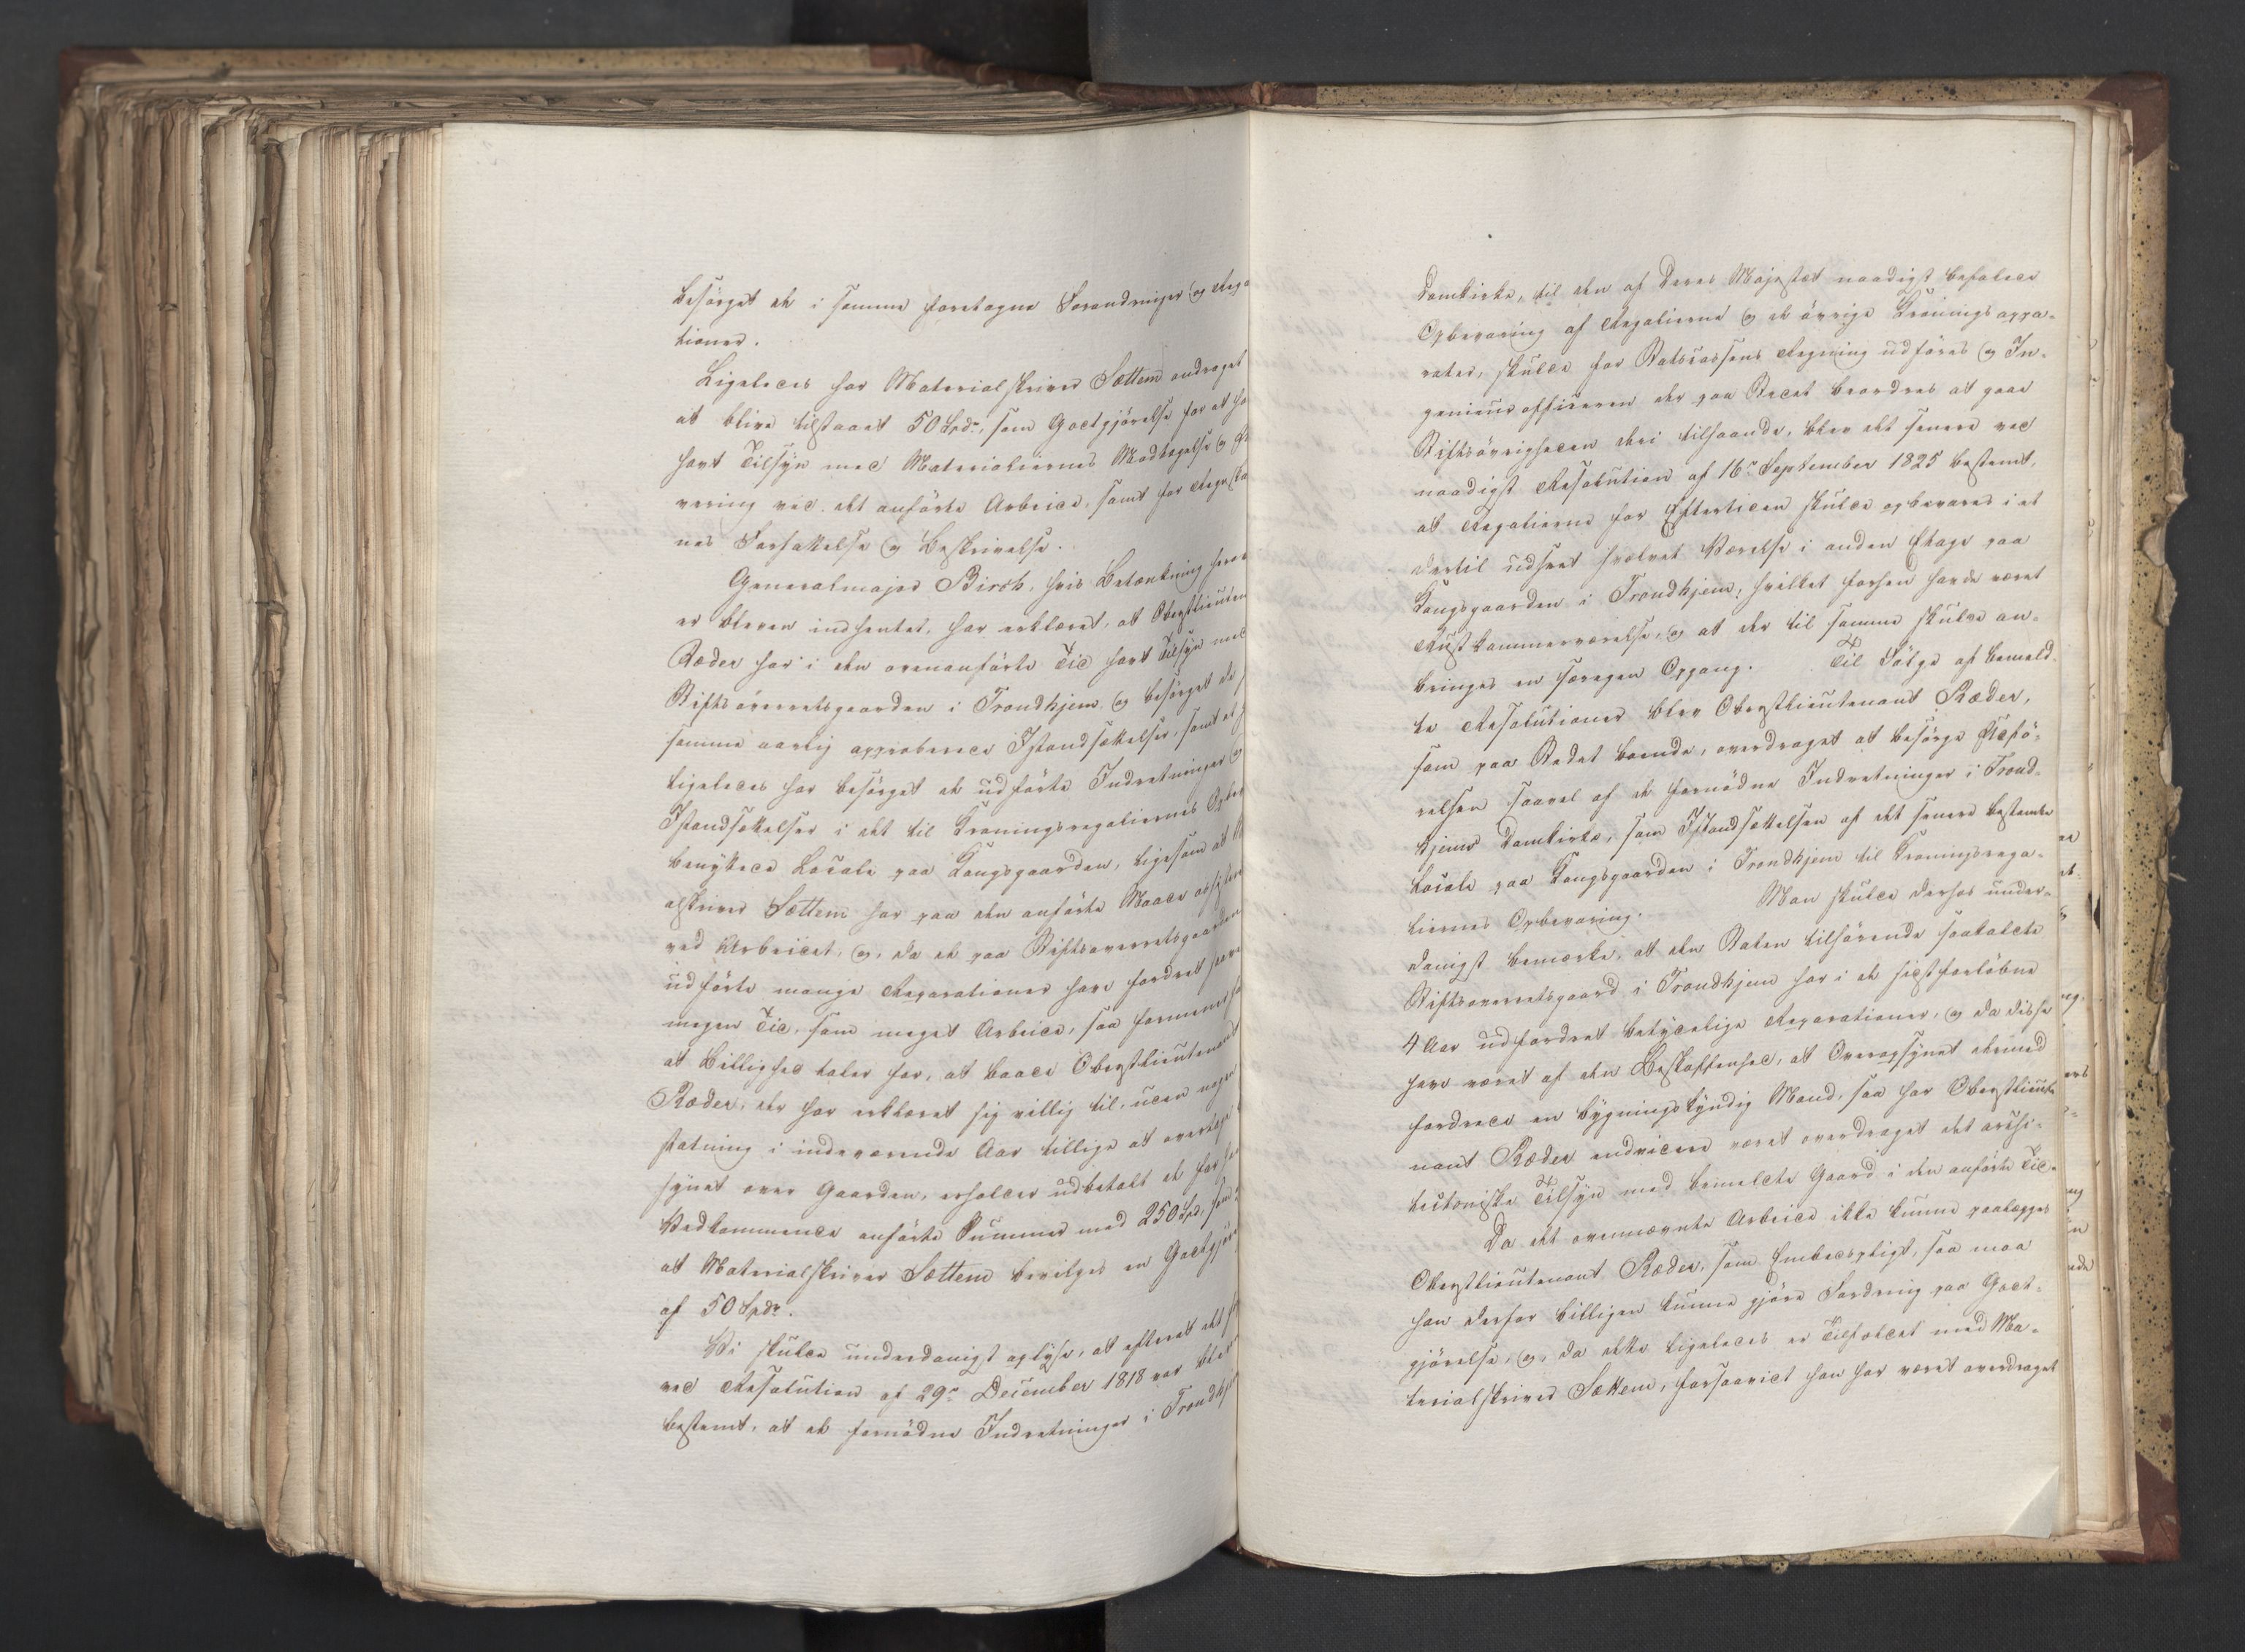 besörget de i samme foretagne Forandringer og Repa
tioner.
Ligeledes har Materialskriver Sættem andraget
at blive tilstaaet 50 Spdr, som Godtgjörelse for at ha
havt Tilsyn med Materialiernes Modtagelse og
vering ved det anförte Arbeide, samt for
nes Forfattelse og Beskrivelse.
Generalmajor Birch, hvis Betænkning
er bleven indhentet, har erklæret, at Oberstlieuten
Ræder har i den ovenanförte Tid havt Tilsyn med
Stiftsöverretsgaarden i Trondhjem og besörget de
samme aarlig approberede Istandsættelser, samt at
ligeledes har besörget de udförte Indretninger og
Istandsættelser i det til Kroningsregaliernes Opbev
benyttede Locale paa Kongsgaarden, ligesom at
alskriver Sættem har paa den anförte Maade assister
ved Arbeidet, og, da de paa Stiftsoverretsgaarden
udförte mange Reparationer have fordret saave
megen Tid, som meget Arbeide, saa formener
at Billighed taler for, at baade Oberstlieutenant
Ræder, der har erklæret sig villig til, uden nogen
statning i indeværende Aar tillige at overtage
synet over Gaarden, erholder udbetalt de for
Vedkommende anförte Summer med 250 Spd,
at Materialskriver Sættem bevilges en Godtgjör
af 50 Spdr.
Vi skulde underdanigst oplyse, at efterat det
ved Resolution af 29r December 1818 var blev
bestemt, at de fornödne Indretninger i Trondhj
Domkirke, til den af Deres Majestæt naadigst befalede
Opbevaring af Regalierne og de övrige Kronings appa-
rater, skulde for Statscassens Regning udföres og In-
genieurofficeren der paa Stedet beordres at gaae
Stiftsövrigheden deri tilhaande, blev det senere ved
naadigst Resolution af 16r September 1825 bestemt,
at Regalierne for Eftertiden skulde opbevares i et
dertil udseet hvælvet Værelse i anden Etage paa
Kongsgaarden i Trondhjem, hvilket forhen havde været
Rustkammerværelse, og at der til samme skulde an-
bringes en særegen Opgang. Til Fölge af bemeld-
te Resolutioner blev Oberstlieutenant Ræder,
som paa Stedet boende, overdraget at besörge Udfö-
relsen saavel af de fornödne Indretninger i Trond-
hjems Domkirke, som Istandsættelsen af det senere bestemte
Locale paa Kongsgaarden i Trondhjem til Kroningsrega-
liernes Opbevaring. Man skulde derhos under-
danigst bemærke, at den Staten tilhörende saakaldte
Stiftsoverretsgaard i Trondhjem har i de sidstforlöbne
4 Aar udfordret betydelige Reparationer, og da disse
have været af den Beskaffenhed, at Overopsynet dermed
fordrede en bygningskyndig Mand, saa har Oberstlieute
nant Ræder endvidere været overdraget det archi-
tectoniske Tilsyn med bemeldte Gaard i den anförte Tid.
Da det ovennævnte Arbeide ikke kunne paalægges
Oberstlieutenant Ræder, som Embedspligt, saa maa
han derfor billigen kunne gjöre Fordring paa Godt-
gjörelse, og, da dette ligeledes er Tilfældet med Ma-
terialskriver Sættem, forsaavidt han har været overdraget